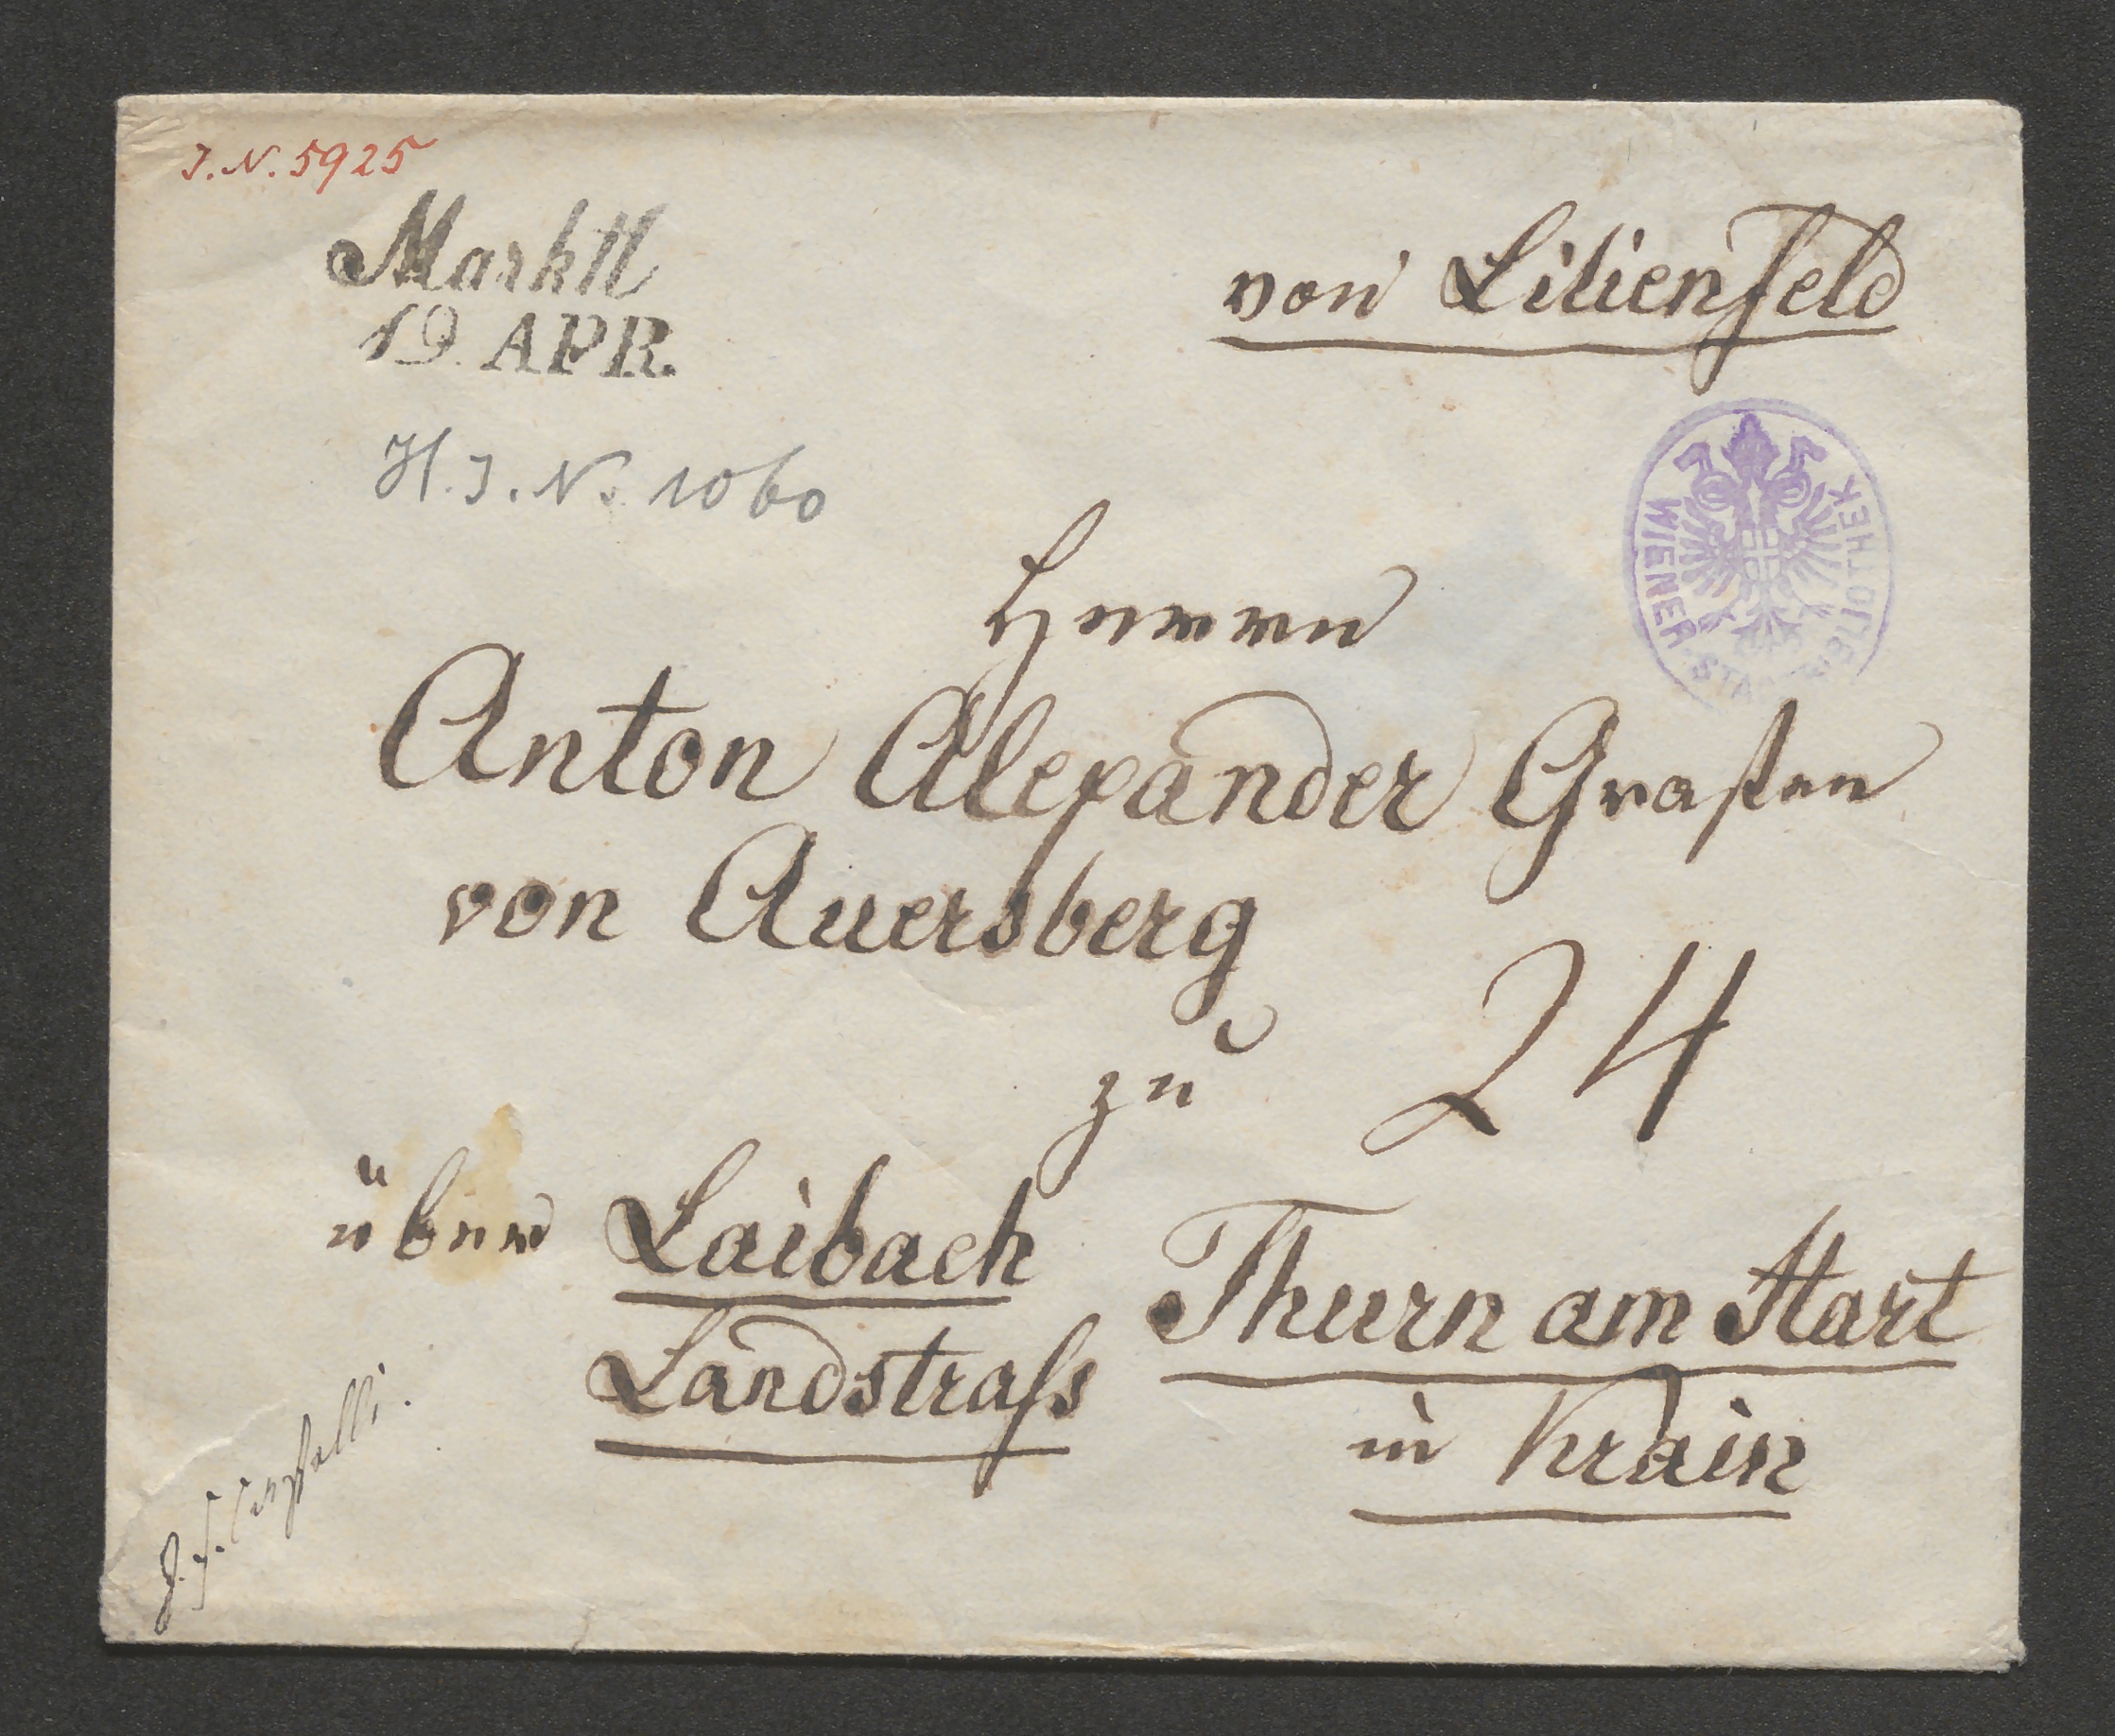 J. N. 5925
Marktl
19. APR.
von Lilienfeld
H. J. N. 1060
WIENER STADTBIBLIOTHEK
Herrn
Anton Alexander Grafen
von Auersberg
zu
24
über Laibach
Landstraſs
Thurn am Hart
in Krain